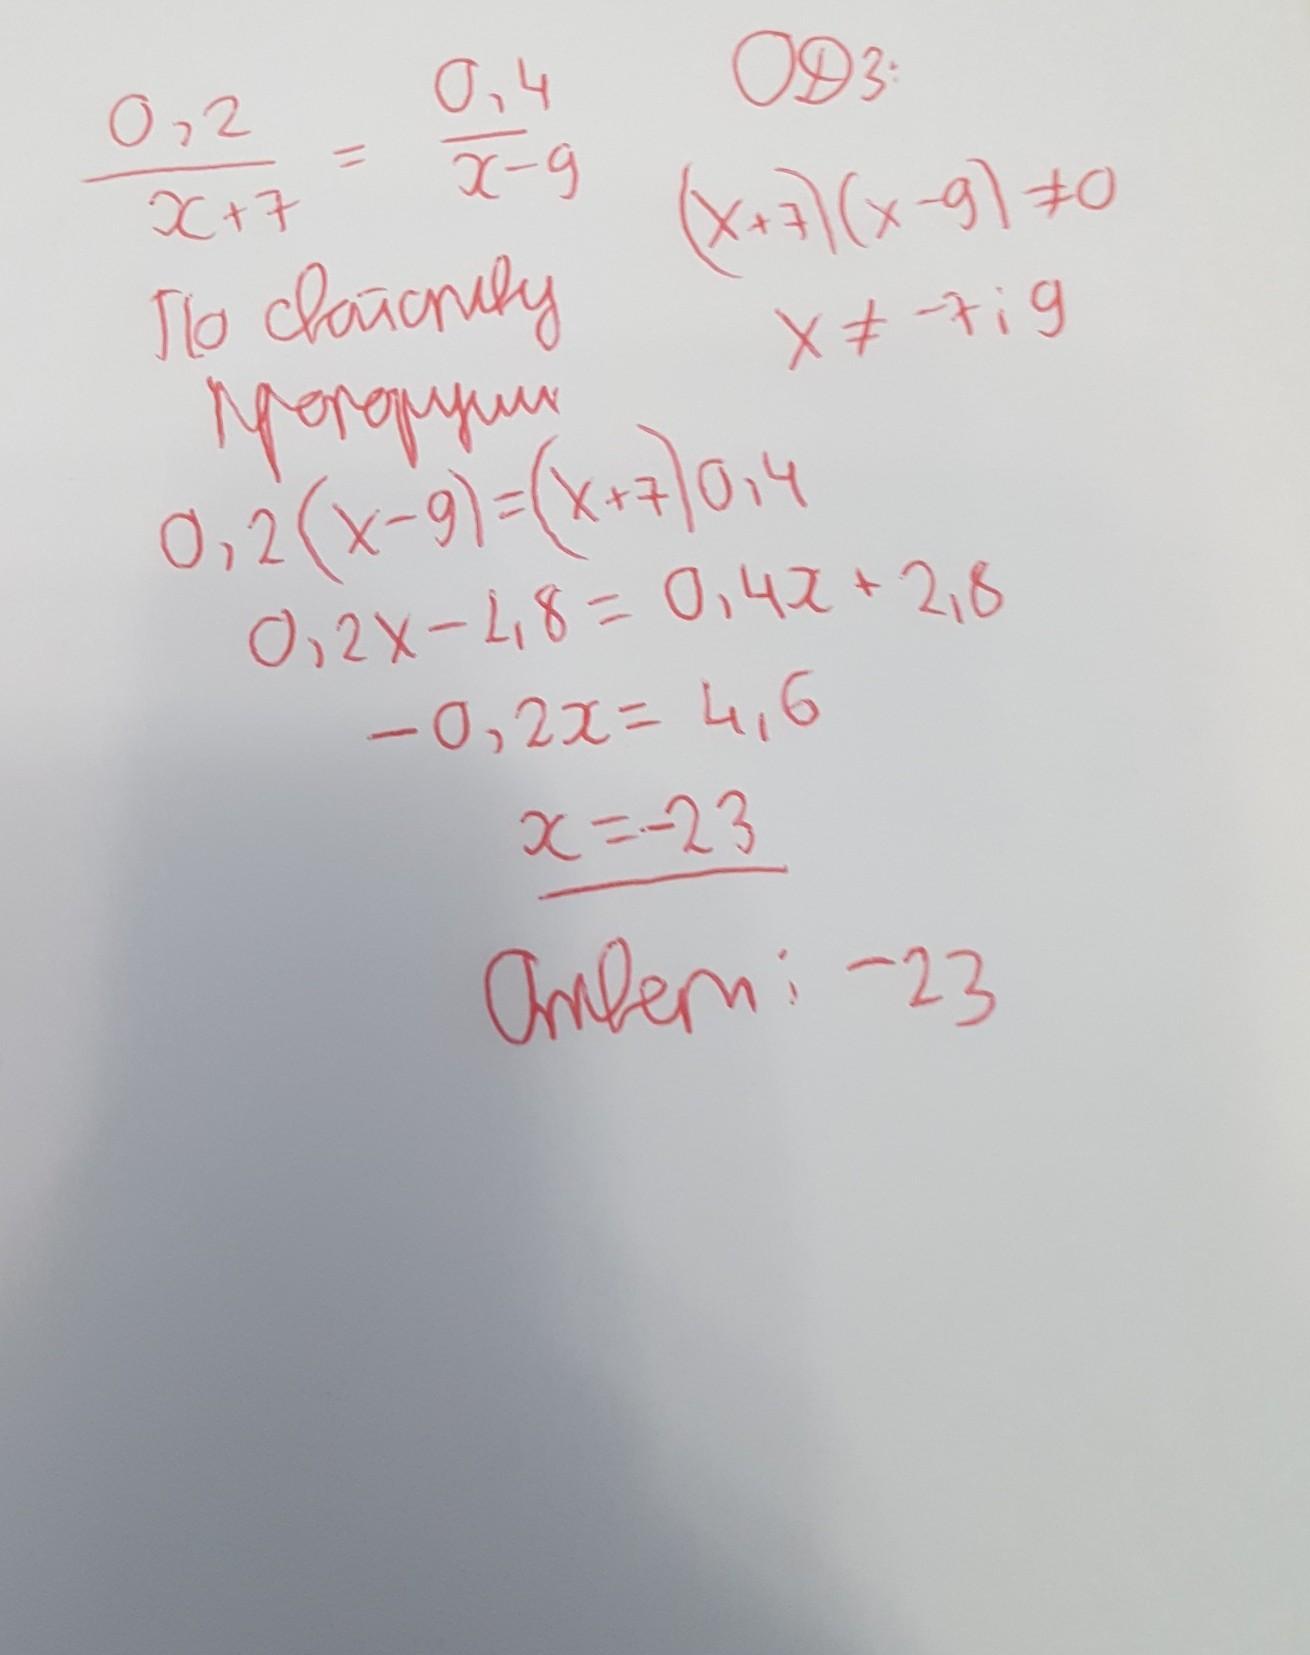 0,2/(x+7) = 0,4/(x-9)
ОДЗ:
(x+7)(x-9)≠0
x ≠ -7; 9
По свойству
пропорции
0,2(x-9)=(x+7)0,4
0,2x-1,8=0,4x+2,8
-0,2x=4,6
x=-23
Ответ: -23